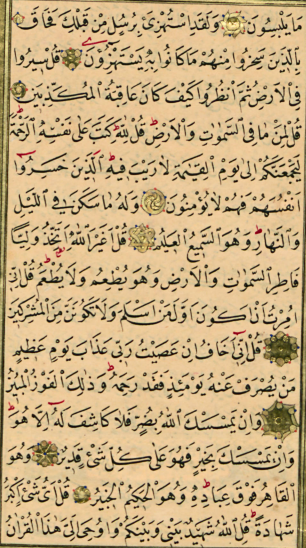 مَا يَلْبِسُونَ وَلَقَدِ اسْتُهْزِئَ بِرُسُلٍ مِنْ قَبْلِكَ فَحَاقَ
بِالَّذِينَ سَخِرُوا مِنْهُمْ مَا كَانُوا بِهِ يَسْتَهْزِؤُنَ قُلْ سِيرُوا
فِي الْاَرْضِ ثُمَّ انْظُرُوا كَيْفَ كَانَ عَاقِبَةُ الْمُكَذِّبِينَ
قُلْ لِمَنْ مَا فِي السَّمٰوَاتِ وَالْاَرْضِ قُلْ لِلّٰهِ كَتَبَ عَلٰى نَفْسِهِ الرَّحْمَةَ
لَيَجْمَعَنَّكُمْ اِلٰى يَوْمِ الْقِيٰمَةِ لَا رَيْبَ فِيهِ الَّذِينَ خَسِرُوا
اَنْفُسَهُمْ فَهُمْ لَا يُؤْمِنُونَ وَلَهُ مَا سَكَنَ فِي اللَّيْلِ
وَالنَّهَارِ وَهُوَ السَّمِيعُ الْعَلِيمُ قُلْ اَغَيْرَ اللّٰهِ اَتَّخِذُ وَلِيًّا
فَاطِرِ السَّمٰوَاتِ وَالْاَرْضِ وَهُوَ يُطْعِمُ وَلَا يُطْعَمُ قُلْ اِنِّي
اُمِرْتُ اَنْ اَكُونَ اَوَّلَ مَنْ اَسْلَمَ وَلَا تَكُونَنَّ مِنَ الْمُشْرِكِينَ
قُلْ اِنِّي اَخَافُ اِنْ عَصَيْتُ رَبِّي عَذَابَ يَوْمٍ عَظِيمٍ
مَنْ يُصْرَفْ عَنْهُ يَوْمَئِذٍ فَقَدْ رَحِمَهُ وَذٰلِكَ الْفَوْزُ الْمُبِينُ
وَاِنْ يَمْسَسْكَ اللّٰهُ بِضُرٍّ فَلَا كَاشِفَ لَهُ اِلَّا هُوَ
وَاِنْ يَمْسَسْكَ بِخَيْرٍ فَهُوَ عَلٰى كُلِّ شَيْءٍ قَدِيرٌ وَهُوَ
الْقَاهِرُ فَوْقَ عِبَادِهِ وَهُوَ الْحَكِيمُ الْخَبِيرُ قُلْ اَيُّ شَيْءٍ اَكْبَرُ
شَهَادَةً قُلِ اللّٰهُ شَهِيدٌ بَيْنِي وَبَيْنَكُمْ وَاُوحِيَ اِلَيَّ هٰذَا الْقُرْاٰنُ